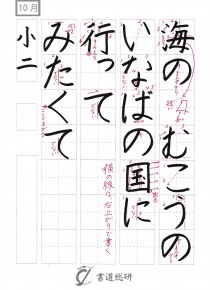 10月
海のむこうの
いなばの国に
行って
みたくて
小二
横の線は、右上がりで書く
書道総研